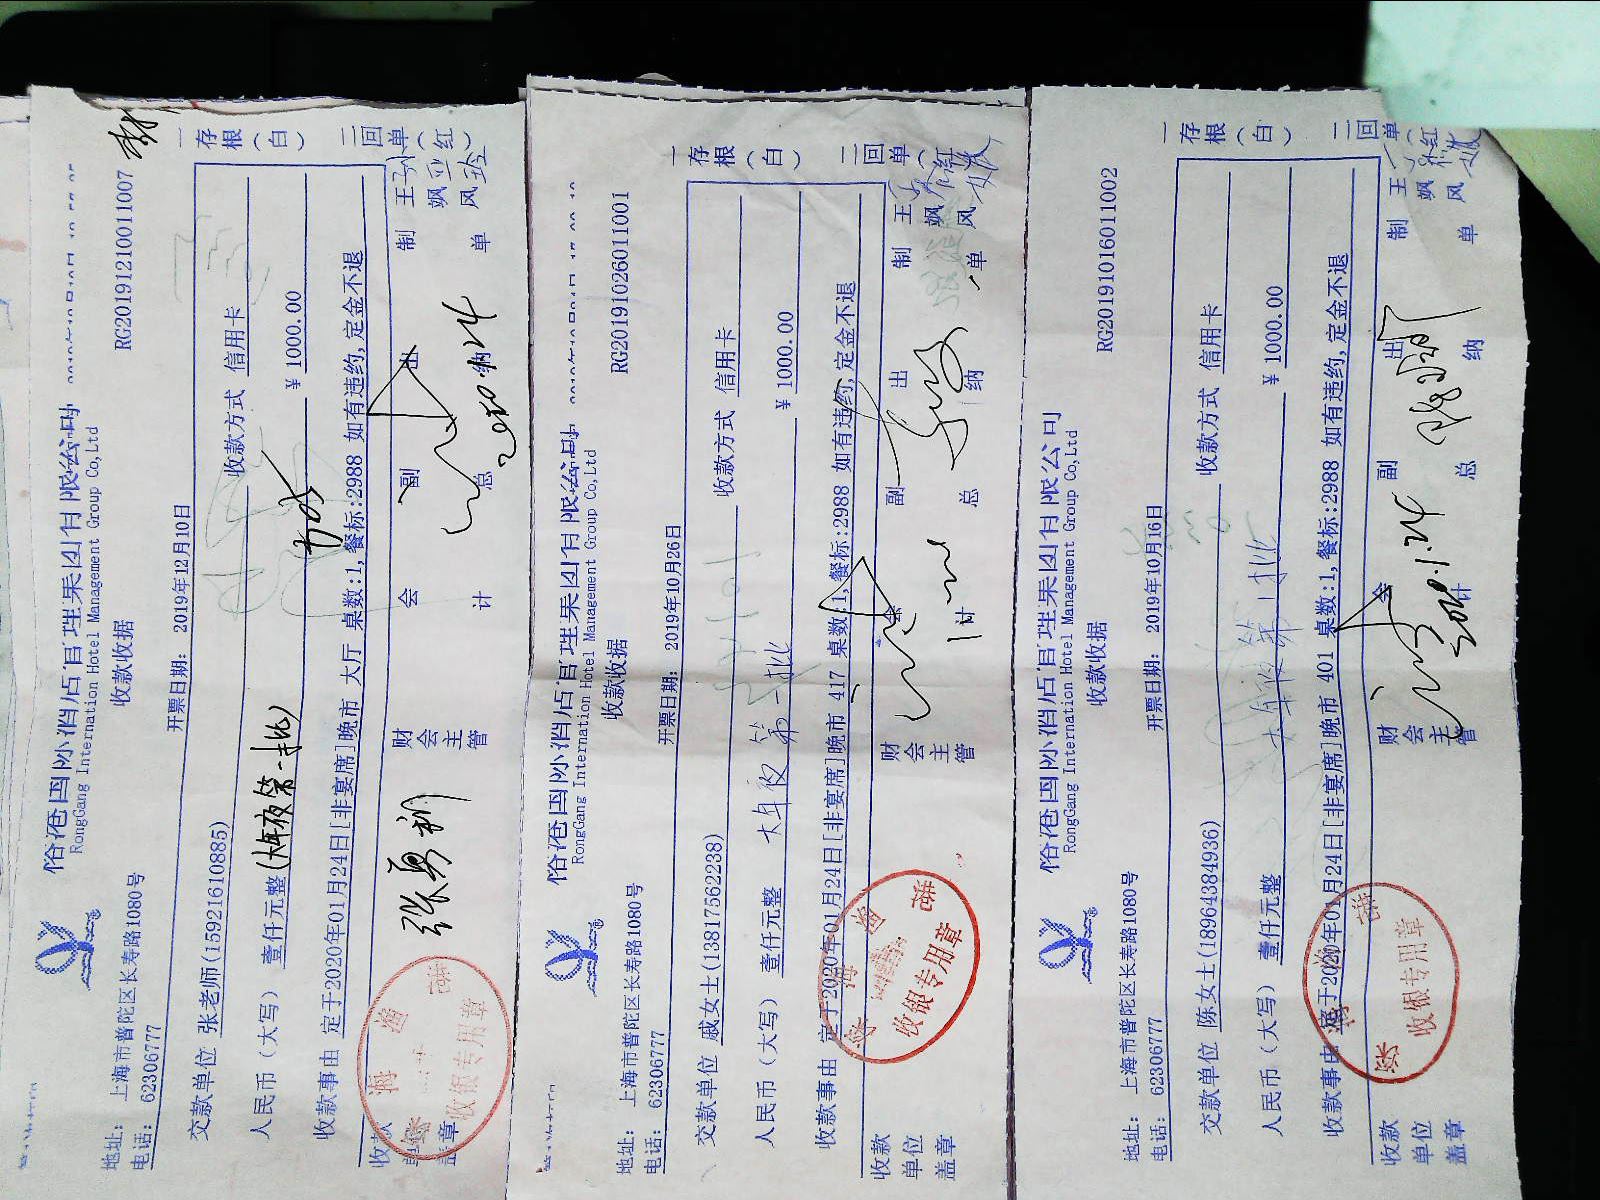 RG20191210011007
榕港国际酒店管理集团有限公司
RongGang International Hotel Management Group Co,Ltd
收款收据
地址: 上海市普陀区长寿路1080号
电话: 62306777
开票日期: 2019年12月10日
一存根(白)
二回单(红)
交款单位 张老师(15921610885) 收款方式 信用卡
人民币(大写) 壹仟元整(大年夜第一批) ¥ 1000.00
收款事由 定于2020年01月24日[非宴席]晚市 大厅 桌数:1,餐标:2988 如有违约,定金不退
收款单位盖章 财会主管 会计 副总 出纳 制单 王飒风
收银专用章
2020.1.24
RG20191026011001
榕港国际酒店管理集团有限公司
RongGang International Hotel Management Group Co,Ltd
收款收据
地址: 上海市普陀区长寿路1080号
电话: 62306777
开票日期: 2019年10月26日
一存根(白)
二回单(红)
交款单位 戚女士(13817562238) 收款方式 信用卡
人民币(大写) 壹仟元整 大年夜第一批 ¥ 1000.00
收款事由 定于2020年01月24日[非宴席]晚市 417 桌数:1,餐标:2988 如有违约,定金不退
收款单位盖章 财会主管 会计 副总 出纳 制单 王飒风
收银专用章
RG20191016011002
榕港国际酒店管理集团有限公司
RongGang International Hotel Management Group Co,Ltd
收款收据
地址: 上海市普陀区长寿路1080号
电话: 62306777
开票日期: 2019年10月16日
一存根(白)
二回单(红)
交款单位 陈女士(18964384936) 收款方式 信用卡
人民币(大写) 壹仟元整 大年夜第1批 ¥ 1000.00
收款事由 定于2020年01月24日[非宴席]晚市 401 桌数:1,餐标:2988 如有违约,定金不退
收款单位盖章 财会主管 会计 副总 出纳 制单 王飒风
收银专用章
2020.1.24